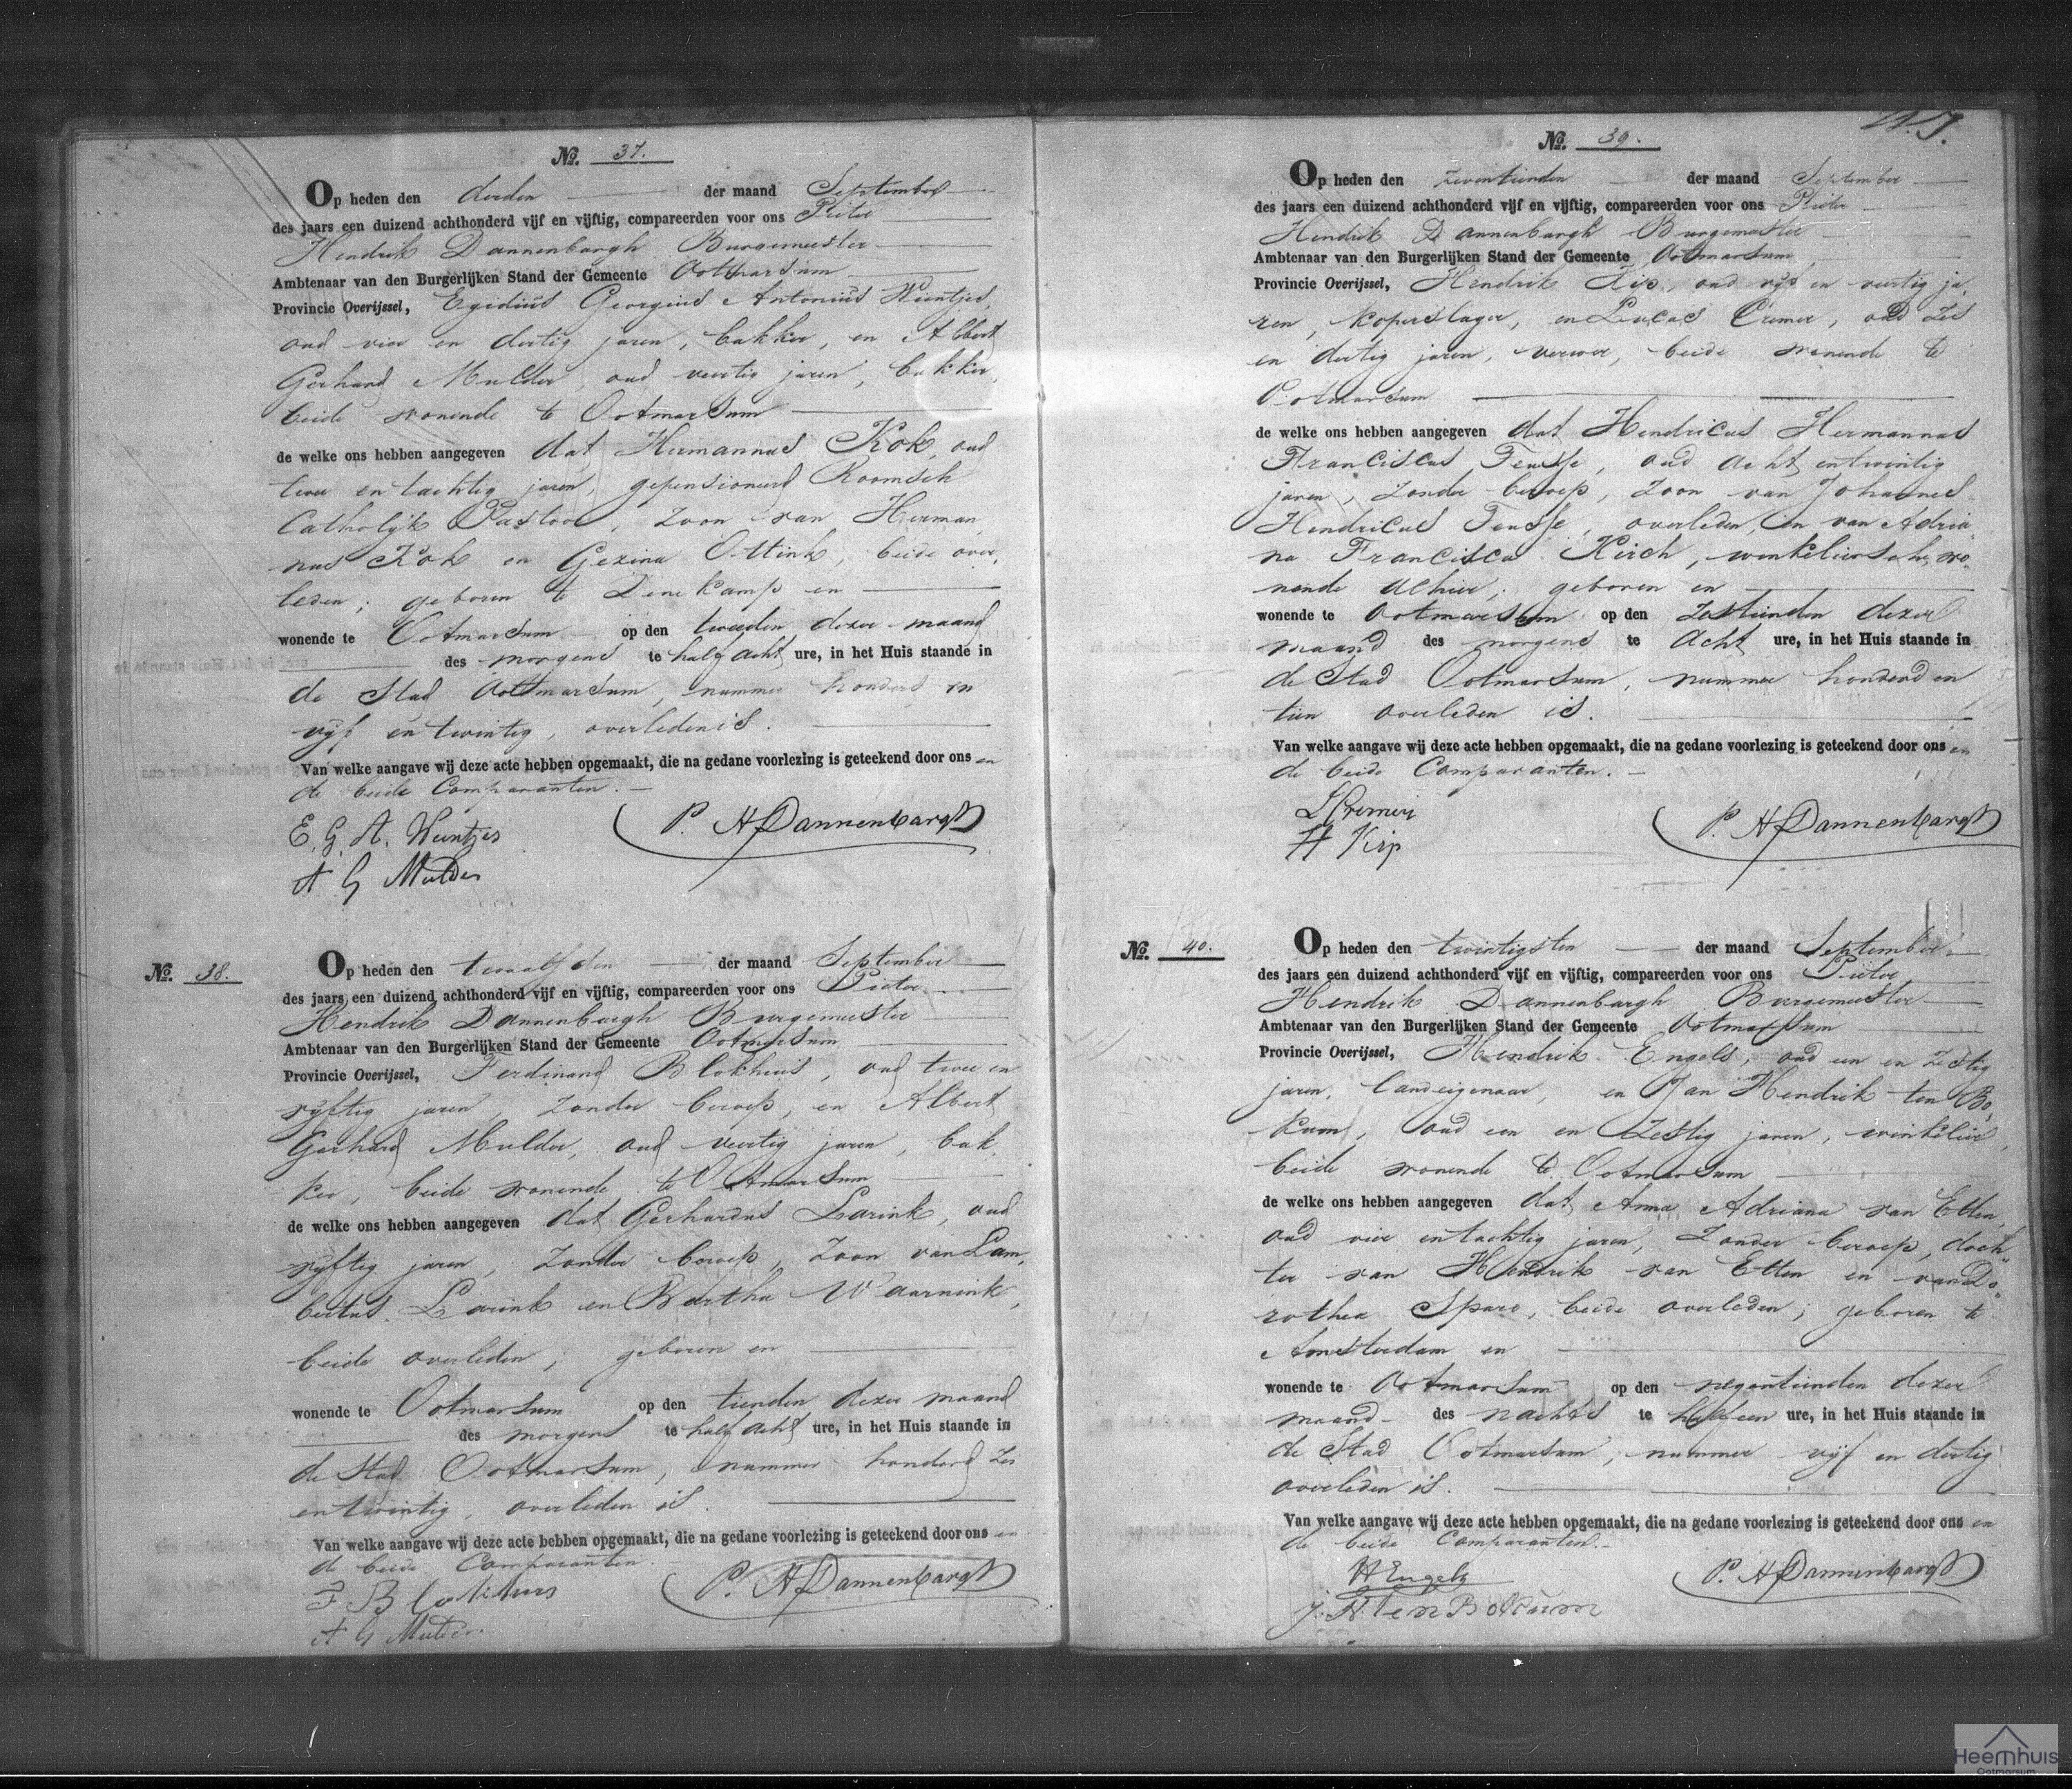 No. 37.
Op heden den derden der maand September
des jaars een duizend achthonderd vijf en vijftig, compareerden voor ons Pieter
Hendrik Dannenbargh Burgemeester
Ambtenaar van den Burgerlijken Stand der Gemeente Ootmarsum
Provincie Overijssel, Egedius Georgius Antonius Weintjes,
oud vier en dertig jaren, bakker, en Albert
Gerhard Mulder, oud veertig jaren, bakker,
beide wonende te Ootmarsum
de welke ons hebben aangegeven dat Hermannus Kok, oud
twee en tachtig jaren, gepensioneerd Roomsch
Catholijk Pastoor, zoon van Herman
nus Kok en Gezina Ottink, beide over,
leden; geboren te Denekamp en
wonende te Ootmarsum op den tweeden dezer maand
des morgens te half acht ure, in het Huis staande in
de Stad Ootmarsum, nummer honderd en
vijf en twintig, overleden is.
Van welke aangave wij deze acte hebben opgemaakt, die na gedane voorlezing is geteekend door ons en
de beide Comparanten.
E. G. A. Weintjes
P. H Dannenbargh
A G Mulder
No. 38.
Op heden den twaalfden der maand September
des jaars een duizend achthonderd vijf en vijftig, compareerden voor ons Pieter
Hendrik Dannenbargh Burgemeester
Ambtenaar van den Burgerlijken Stand der Gemeente Ootmarsum
Provincie Overijssel, Ferdinand Blokhuis, oud twee en
vijftig jaren, zonder beroep, en Albert
Gerhard Mulder, oud veertig jaren, bak,
ker, beide wonende te Ootmarsum
de welke ons hebben aangegeven dat Gerhardus Larink, oud
vijftig jaren, zonder beroep, zoon van Lam,
bertus Larink en Bertha Waarnink,
beide overleden; geboren en
wonende te Ootmarsum op den tienden dezer maand
des morgens te half acht ure, in het Huis staande in
de Stad Ootmarsum, nummer honderd zes
en twintig, overleden is.
Van welke aangave wij deze acte hebben opgemaakt, die na gedane voorlezing is geteekend door ons en
de beide Comparanten.
F Blokhuis
P. H Dannenbargh
A G Mulder
No. 39.
Op heden den zeventienden der maand September
des jaars een duizend achthonderd vijf en vijftig, compareerden voor ons Pieter
Hendrik Dannenbargh Burgemeester
Ambtenaar van den Burgerlijken Stand der Gemeente Ootmarsum
Provincie Overijssel, Hendrik Kip, oud vijf en veertig ja,
ren, koperslager, en Lucas Cremer, oud zes
en dertig jaren, verwer, beide wonende te
Ootmarsum
de welke ons hebben aangegeven dat Hendricus Hermannus
Franciscus Teusse, oud acht en twintig
jaren, zonder beroep, zoon van Johannes
Hendricus Teusse, overleden, en van Adria
na Francisca Kerch, winkeliersche, wo,
nende alhier; geboren en
wonende te Ootmarsum op den zestienden dezer
maand des morgens te acht ure, in het Huis staande in
de Stad Ootmarsum, nummer honderd en
tien overleden is.
Van welke aangave wij deze acte hebben opgemaakt, die na gedane voorlezing is geteekend door ons en
de beide Comparanten.
L Cremer
P. H Dannenbargh
H Kip
No. 40.
Op heden den twintigsten der maand September
des jaars een duizend achthonderd vijf en vijftig, compareerden voor ons Pieter
Hendrik Dannenbargh Burgemeester
Ambtenaar van den Burgerlijken Stand der Gemeente Ootmarsum
Provincie Overijssel, Hendrik Engels, oud een en zestig
jaren, landeigenaar, en Jan Hendrik ten Bo,
kum, oud een en zestig jaren, winkelier,
beide wonende te Ootmarsum
de welke ons hebben aangegeven dat Anna Adriana van Etten,
oud vier en tachtig jaren, zonder beroep, doch
ter van Hendrik van Etten en van Do,
rothea Sparo, beide overleden; geboren te
Amsterdam en
wonende te Ootmarsum op den negentienden dezer
maand des nachts te half een ure, in het Huis staande in
de Stad Ootmarsum, nummer vijf en dertig
overleden is.
Van welke aangave wij deze acte hebben opgemaakt, die na gedane voorlezing is geteekend door ons en
de beide Comparanten.
H Engels
P. H Dannenbargh
J. H. ten Bokum
Heemhuis
Ootmarsum